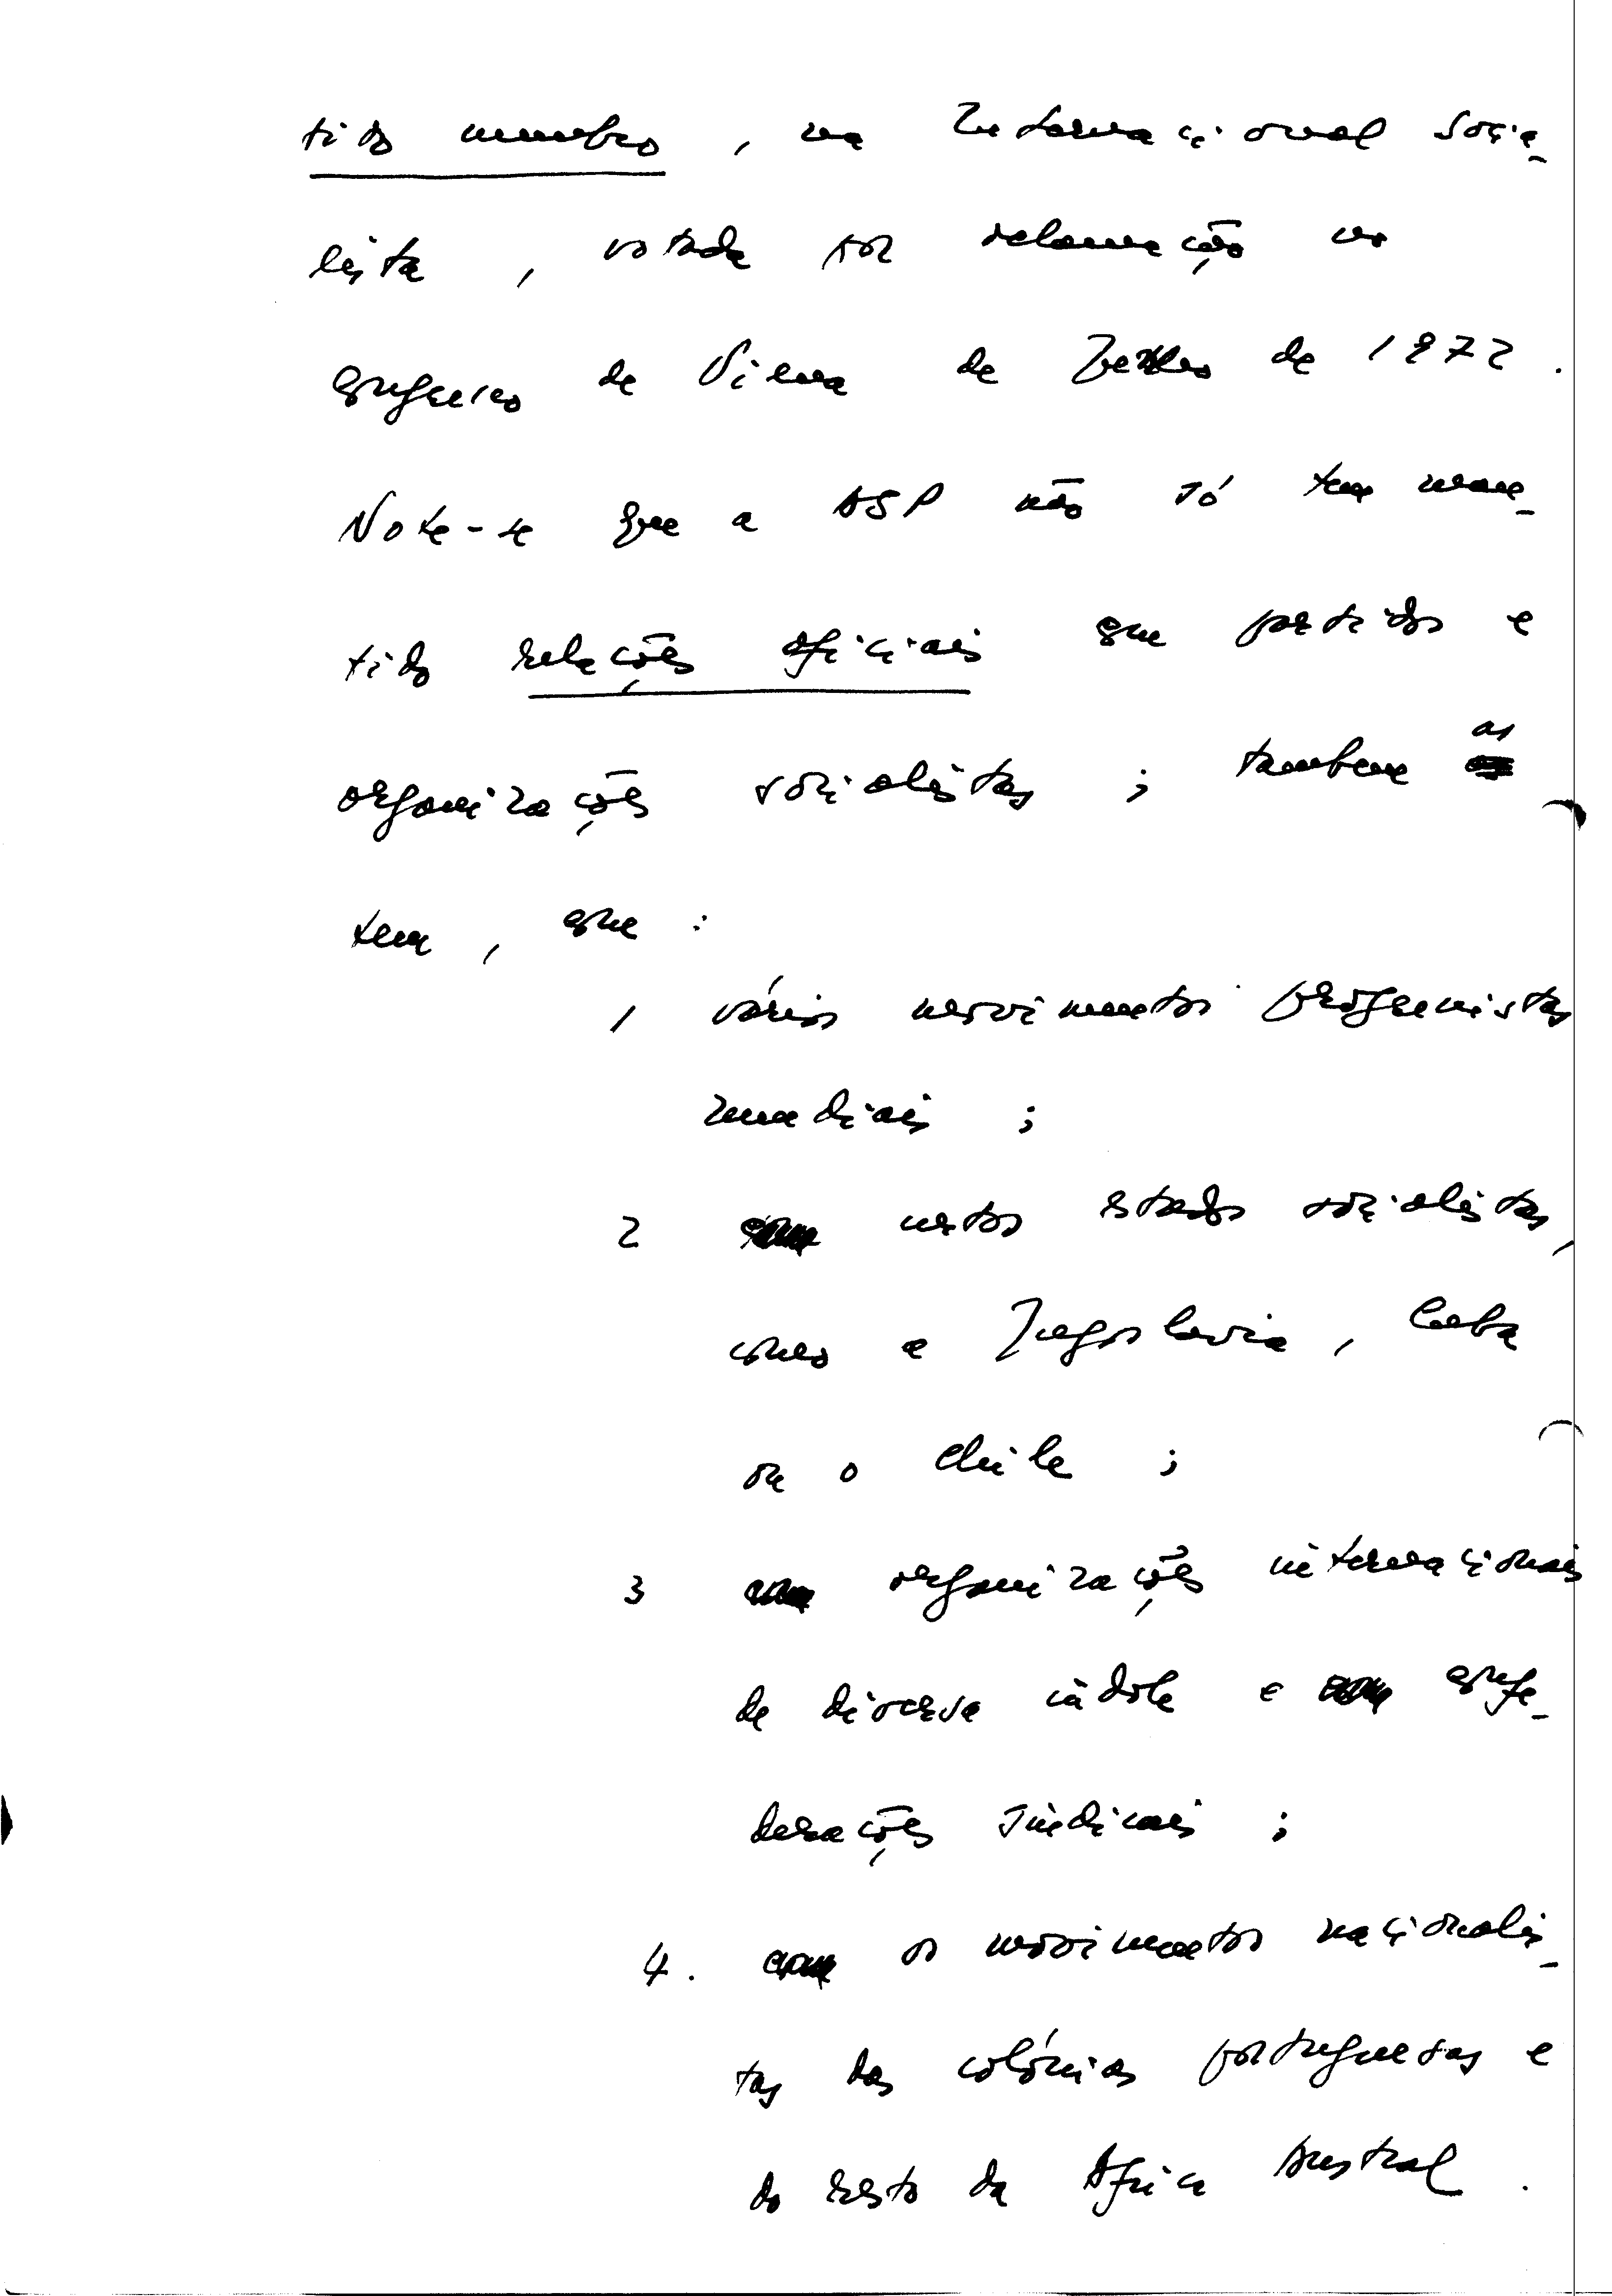 tido membro, na Internacional Socia-
lista, votada por aclamação no
congresso de Viena de Junho de 1972.
Note-se que a ASP não só tem man-
tido relações oficiais com partidos e
organizações socialistas; também as
tem, com:
1 vários movimentos progressistas
mundiais;
2 certos estados socialistas,
como a Jugoslavia, Cuba
ou o Chile;
3 organizações internacionais
de diversa índole e confe-
derações sindicais;
4. com os movimentos nacionalis-
tas das colónias portuguesas e
do resto da Africa Austral.